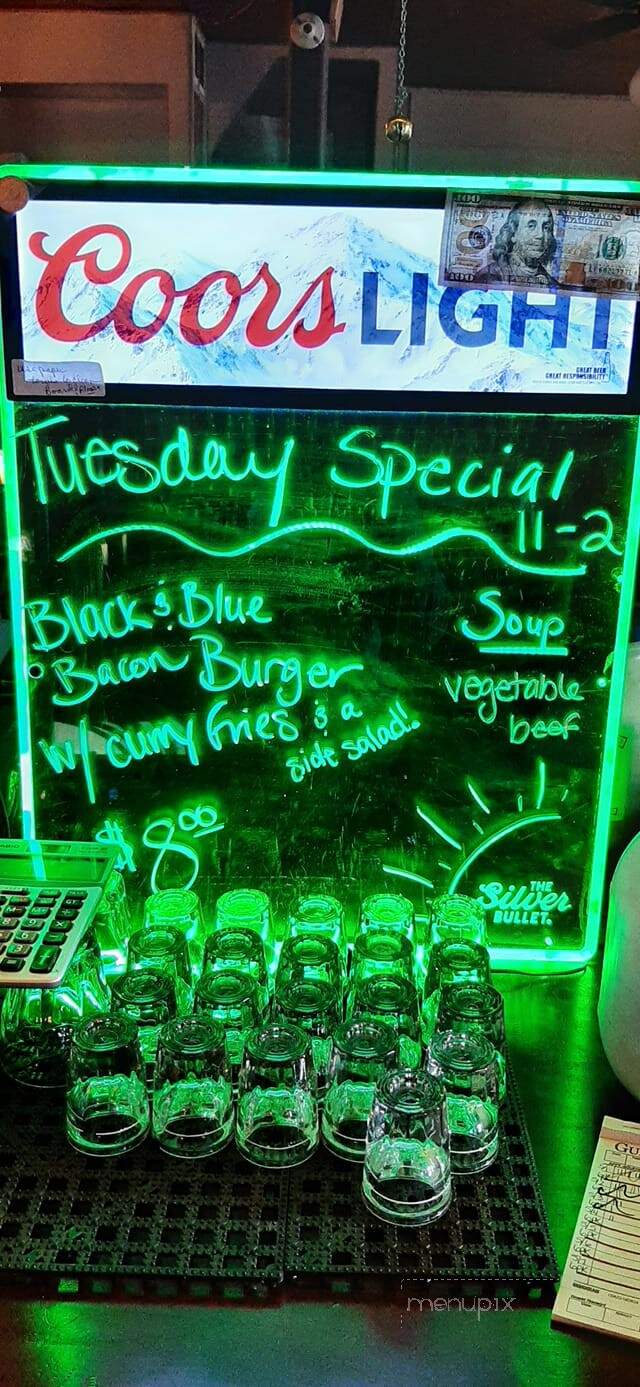 Coors LIGHT
100
100
GREAT BEER
GREAT RESPONSIBILITY
Tuesday Special
11-2
Black & Blue
Bacon Burger
w/ curry fries & a
side salad!
$8.00
Soup
vegetable
beef
THE
Silver
BULLET.
CASIO
GU
menupix